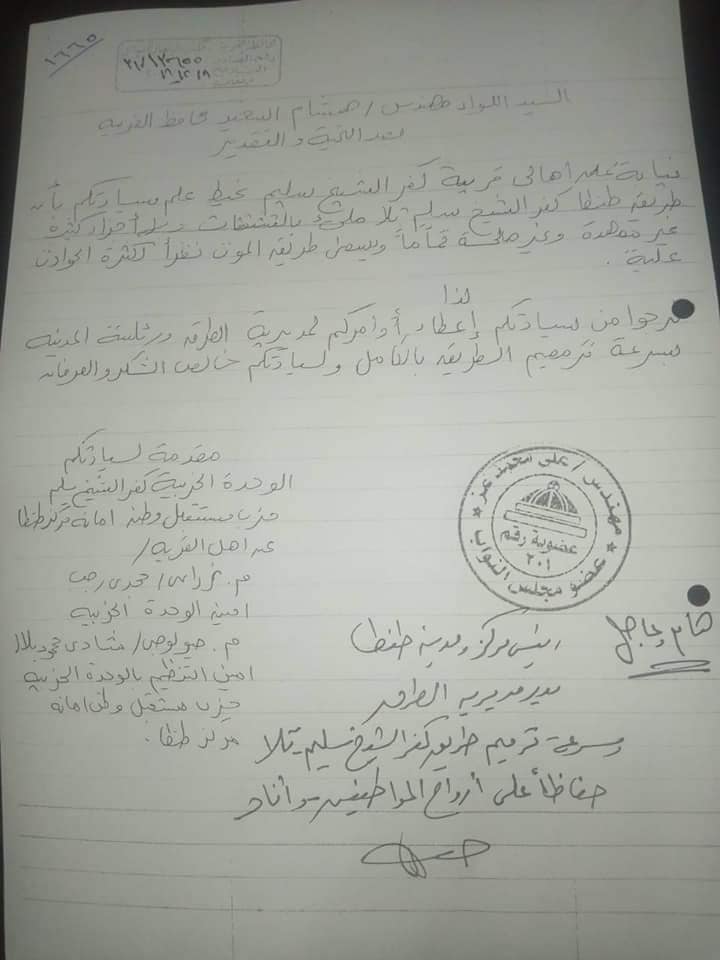 ١٦٦٥
السيد اللواء مهندس / هشام السعيد محافظ الغربية
بعد التحية والتقدير
نيابة عن أهالى قرية كفر الشيخ سليم نحيط علم سيادتكم بأن
طريق طنطا كفر الشيخ سليم تلا ملئ بالتشققات وبه أجزاء كثيرة
غير ممهدة وغير صالحة تماماً ويسمى طريق الموت نظراً لكثرة الحوادث
علية .
لذا
نرجوا من سيادتكم إعطاء أوامركم لمديرية الطرق ورئاسة المدينة
بسرعة ترميم الطريق بالكامل ولسيادتكم خالص الشكر والعرفان
مقدمة لسيادتكم
الوحدة الحزبية كفر الشيخ سليم
حزب مستقبل وطن امانة مركز طنطا
عن اهل القرية /
م . / مجدى رجب
امين الوحدة الحزبية
م . / شادى محمود بلال
امين التنظيم بالوحدة الحزبية
حزب مستقبل وطن امانة
مركز طنطا .
مهندس / على محمد عز
عضوية رقم
٢٠١
عضو مجلس النواب
هام وعاجل
رئيس مركز ومدينة طنطا
مدير مديرية الطرق
وسرعة ترميم طريق كفر الشيخ سليم - تلا
حفاظاً على أرواح المواطنين